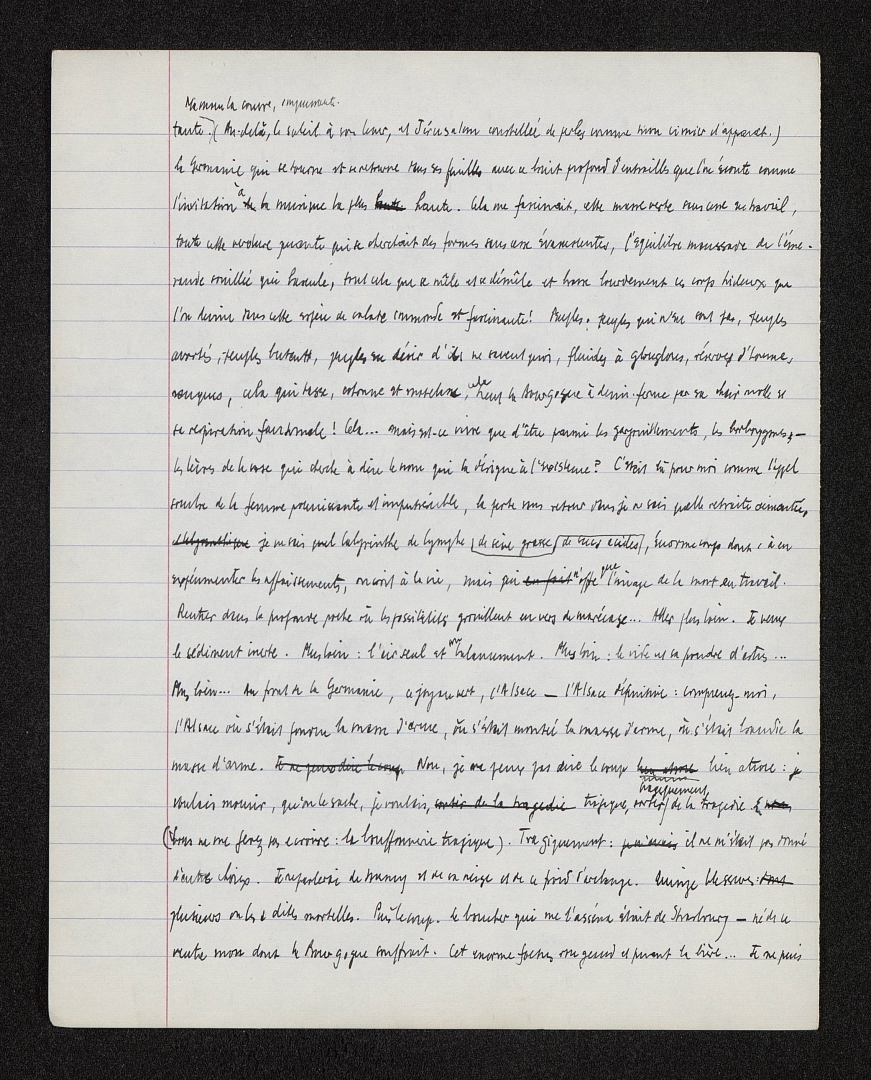 la couvre,
tante. (Au-delà, le soleil à son lever, et Jérusalem constellée de perles comme mon cimier d'apparat.)
la Germanie qui se tourne et se retourne sous ses feuilles avec ce bruit profond d'entrailles que l'on écoute comme
l'invitation à la musique la plus haute. Cela me fascinait, cette masse verte sans cesse en travail,
toute cette verdure puante qui se cherchait des formes sans cesse évanescentes, l'équilibre maussade de l'éme-
raude souillée qui bascule, tout cela qui se mêle et se démêle et berce lourdement ces corps hideux que
l'on devine sous cette espèce de salade immonde et fascinante! Peuples, peuples qui n'en sont pas, peuples
avortés, peuples butants, peuples en désir d'ils ne savent quoi, fluides à glouglous, réserves d'hommes,
cela qui tasse, entonne et cela veut la Bourgogne à demi-ferme par sa chair molle et
sa respiration fardonale! Cela... mais est-ce vivre que d'être parmi les gargouillements, les borborygmes, —
les lèvres de la vase qui cherche à dire le nom qui la désigne à l'existence? C'était là pour moi comme l'appel
sombre de la femme pourrissante et imputrescible, la perte sans retour dans je ne sais quelle retraite aimante,
je ne sais quel labyrinthe de lymphe de sève grasse de sucs acides, énorme corps dont, à en
expérimenter les affaissements, on croit à la vie, mais qui en fait n'offre que l'image de la mort en travail.
Rentrer dans la profonde poche où les possibilités grouillent en vers de marécage... Aller plus loin. Je veux
le sédiment inerte. Plus loin: l'air seul et son balancement. Plus loin: le vide et sa poudre d'astres...
Plus loin... Au front de la Germanie, ce joyau vert, l'Alsace — l'Alsace définitive: comprenez-moi,
l'Alsace où s'était fourbie la masse d'arme, où s'était montée la masse d'arme, où s'était brandie la
masse d'arme. Je ne peux dire le coup Non, je ne peux pas dire le coup bien atroce bien atroce: je
voulais mourir, qu'on le sache, je voulais, sortir de la tragédie tragique, tragiquement, sortir de la tragédie
(Vous ne me ferez pas écrire: la bouffonnerie tragique). Tragiquement: il ne m'était pas donné
d'autre choix. Je reparlerai de Nancy et de sa neige et de ce froid d'archange. Quinze blessures: dont
plusieurs ont été dites mortelles. Puis le coup. Le boucher qui me l'asséna était de Strasbourg — né de ce
ventre mou dont la Bourgogne souffrait. Cet énorme foetus rougeaud et puant la bière... Je ne puis